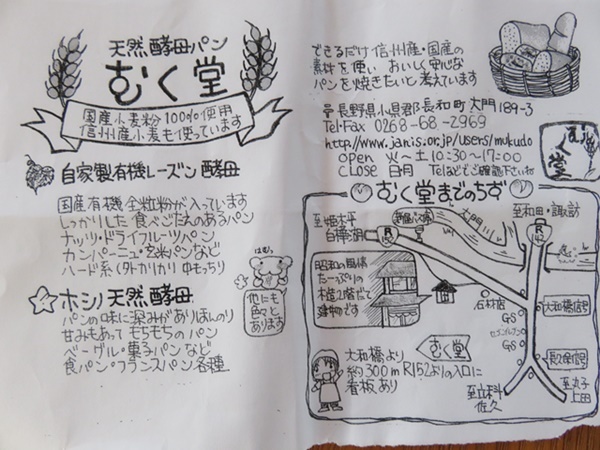 天然酵母パン
むく堂
国産小麦粉100%使用
信州産小麦も使っています
自家製有機レーズン酵母
国産有機全粒粉が入っています
しっかりした食べごたえのあるパン
ナッツ・ドライフルーツパン
カンパーニュ・玄米パンなど
ハード系(外カリカリ 中もっちり
ホシノ天然酵母
パンの味に深みがありほんのり
甘みもあって もちもちのパン
ベーグル・菓子パンなど
食パン・フランスパン各種
他にも
色々と
あります
できるだけ信州産・国産の
素材を使い おいしく安心な
パンを焼きたいと考えています
長野県小県郡長和町大門189-3
Tel・Fax 0268-68-2969
http://www.janis.or.jp/users/mukudo
open 火〜土 10:30〜17:00
CLOSE 日月 Telなどでご確認下さいね
むく堂
むく堂までのちず
至姫木平
白樺湖
R
152
大門川
至和田・諏訪
R
142
昭和の風情
たーっぷりの
木造2階だて
建物です
石材店
GS
セブンイレブン
GS
大和橋信号
むく堂
大和橋より
約300m R152よりの入口に
看板あり
至立科
佐久
至丸子
上田